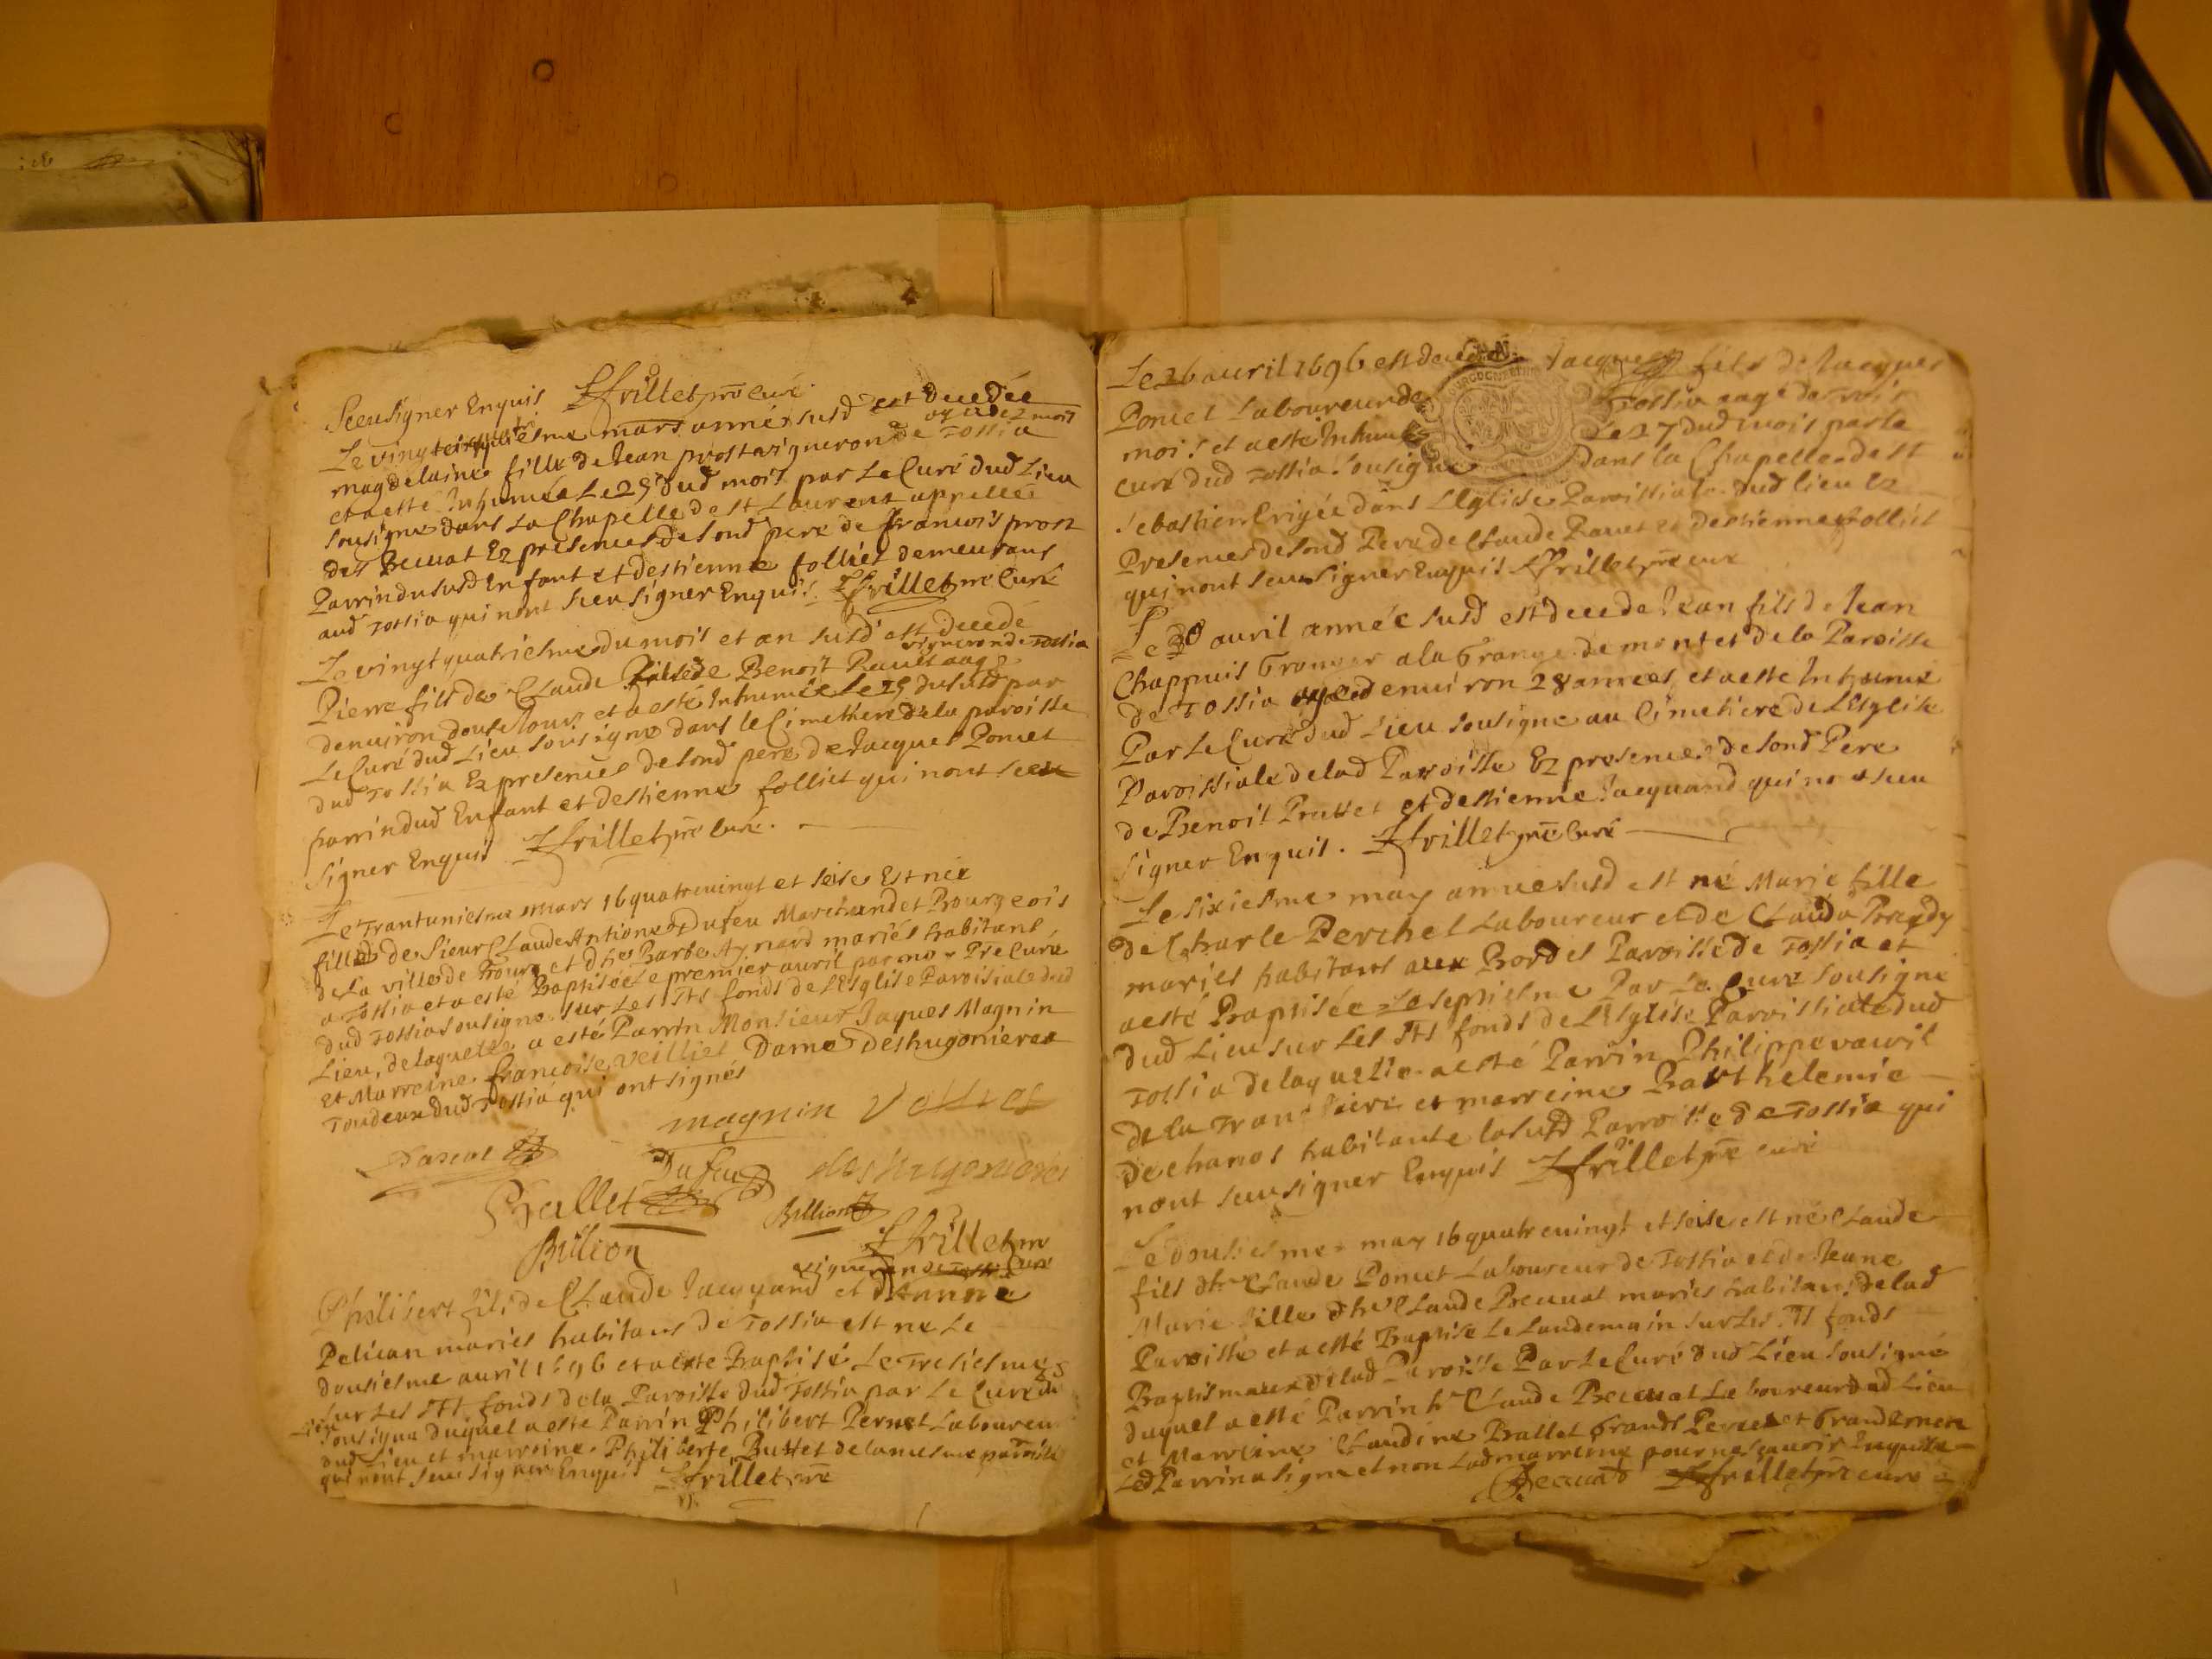 Sceu signer Enquis Zfrillet pre curé
Le vingt quatriesme mars anné susd est decedée
magdelaine fille de Jean prost vigneron de Tossia
et a esté Inhumée Le 25 dud mois par Le Curé dud Lieu
sousigne dans La Chapelle de st Laurens appellée
des Becuat Ez presences de sond pere de françois prost
Parrin du susd Enfant et destienne folliet demeurans
aud Tossia qui nont sceu signer Enquis. Zfrillet pre Curé
Le vingt quatriesme du mois et an susd est decedé
vigneron de Tossia
Pierre fils de Claude de Benoist Ravet aagé
denviron douse Jours et a esté Inhumée Le 25 du susd par
Le Curé dud Lieu sousigne dans le Cimethiere de la paroisse
dud Tossia Ez presences de sond pere de Jacques Poncet
parrin dud Enfant et destienne folliet qui nont sceu
signer Enquis Zfrillet pre curé.
Le Trantuniesme mars 16 quatrevingt et seise Est née
fille de Sieur Claude Antione Dufeu Marchand et Bourgeois
de La ville de Bourg et dhe Barbe Aynard mariés habitans
a Tossia et a esté Baptisée Le premier avril par moy Pre Curé
dud Tossia sousigne sur Les Sts fonds de LEsglise Paroisiale dud
Lieu, de laquelle a esté Parrin Monsieur Jaques Magnin
et Marreine francoise veilliet Dame Deshugonieres
Tondeux dud Tossia qui ont signés
magnin Velliet
Dufeu deshugonieres
Ballet Billion
Billion Zfrillet pre Curé
vigneron de Tossia
Philibert fils de Claude Jacquand et dAnne
Pelican mariés habitans de Tossia est né Le
dousiesme avril 1696 et a esté Baptisé Le Tresiesme
sur Les Sts fonds de la Paroisse dud Tossia par Le Curé du
Lieu sousigne duquel a esté Parrin Philibert Pernet Laboureur
dud Lieu et marreine Philiberte Buttet de la mesme paroisse
qui nont sceu signer Enquis Zfrillet pre
Le 26 avril 1696 est decedé Jacques fils de Jacques
Poncet Laboureur de Tossia aagé de trois
mois et a esté Inhumé Le 27 dud mois par Le
curé dud Tossia sousigne dans la Chapelle de st
sebastien Erigée dans LEglise Paroissiale dud lieu Ez
Presences de sond Pere de Claude Ravet et destienne folliet
qui nont sceu signer Enquis Zfrillet pre curé
Le 30 avril année susd est decede Jean fils de Jean
Chappuis Granger a la Grange de montet de la Paroisse
de Tossia agé denviron 28 années et a esté Inhumé
Par Le Curé dud Lieu sousigne au Cimetiere de LEsglise
Paroissiale de lad Paroisse Ez presences de sond Pere
de Benoit Prattet et destienne Jacquand qui nont sceu
signer Enquis. Zfrillet pre curé
Le sixiesme may année susd est né Marie fille
de Charle Perchet Laboureur et de Clauda Prendy
mariés habitans aux Bordes Paroisse de Tossia et
a esté Baptisée Le septiesme Par Le Curé sousigne
dud Lieu sur Les Sts fonds de LEsglise Paroissiale dud
Tossia de laquelle a esté Parrin Philippe vavril
de la Tranc et marreine Barthelemie
dechanos habitante la susd Paroisse de Tossia qui
nont sceu signer Enquis Zfrillet pre curé
Le dousiesme may 16 quatrevingt et seise est né Claude
fils dhe Claude Poncet Laboureur de Tossia et de Jeane
Marie fille dhe Claude Becuat mariés habitans de lad
Paroisse et a esté Baptise Le Landemain sur Les Sts fonds
Baptismaux de lad Paroisse Par Le Curé dud Lieu sousigné
duquel a esté Parrin he Claude Becuat Laboureur dud Lieu
et Marreine Claudine Ballet Grands Pere et Grand mere
Led Parrin a signe et non Lad marreine pour ne sçavoir Enquise
Becuat Zfrillet pre curé